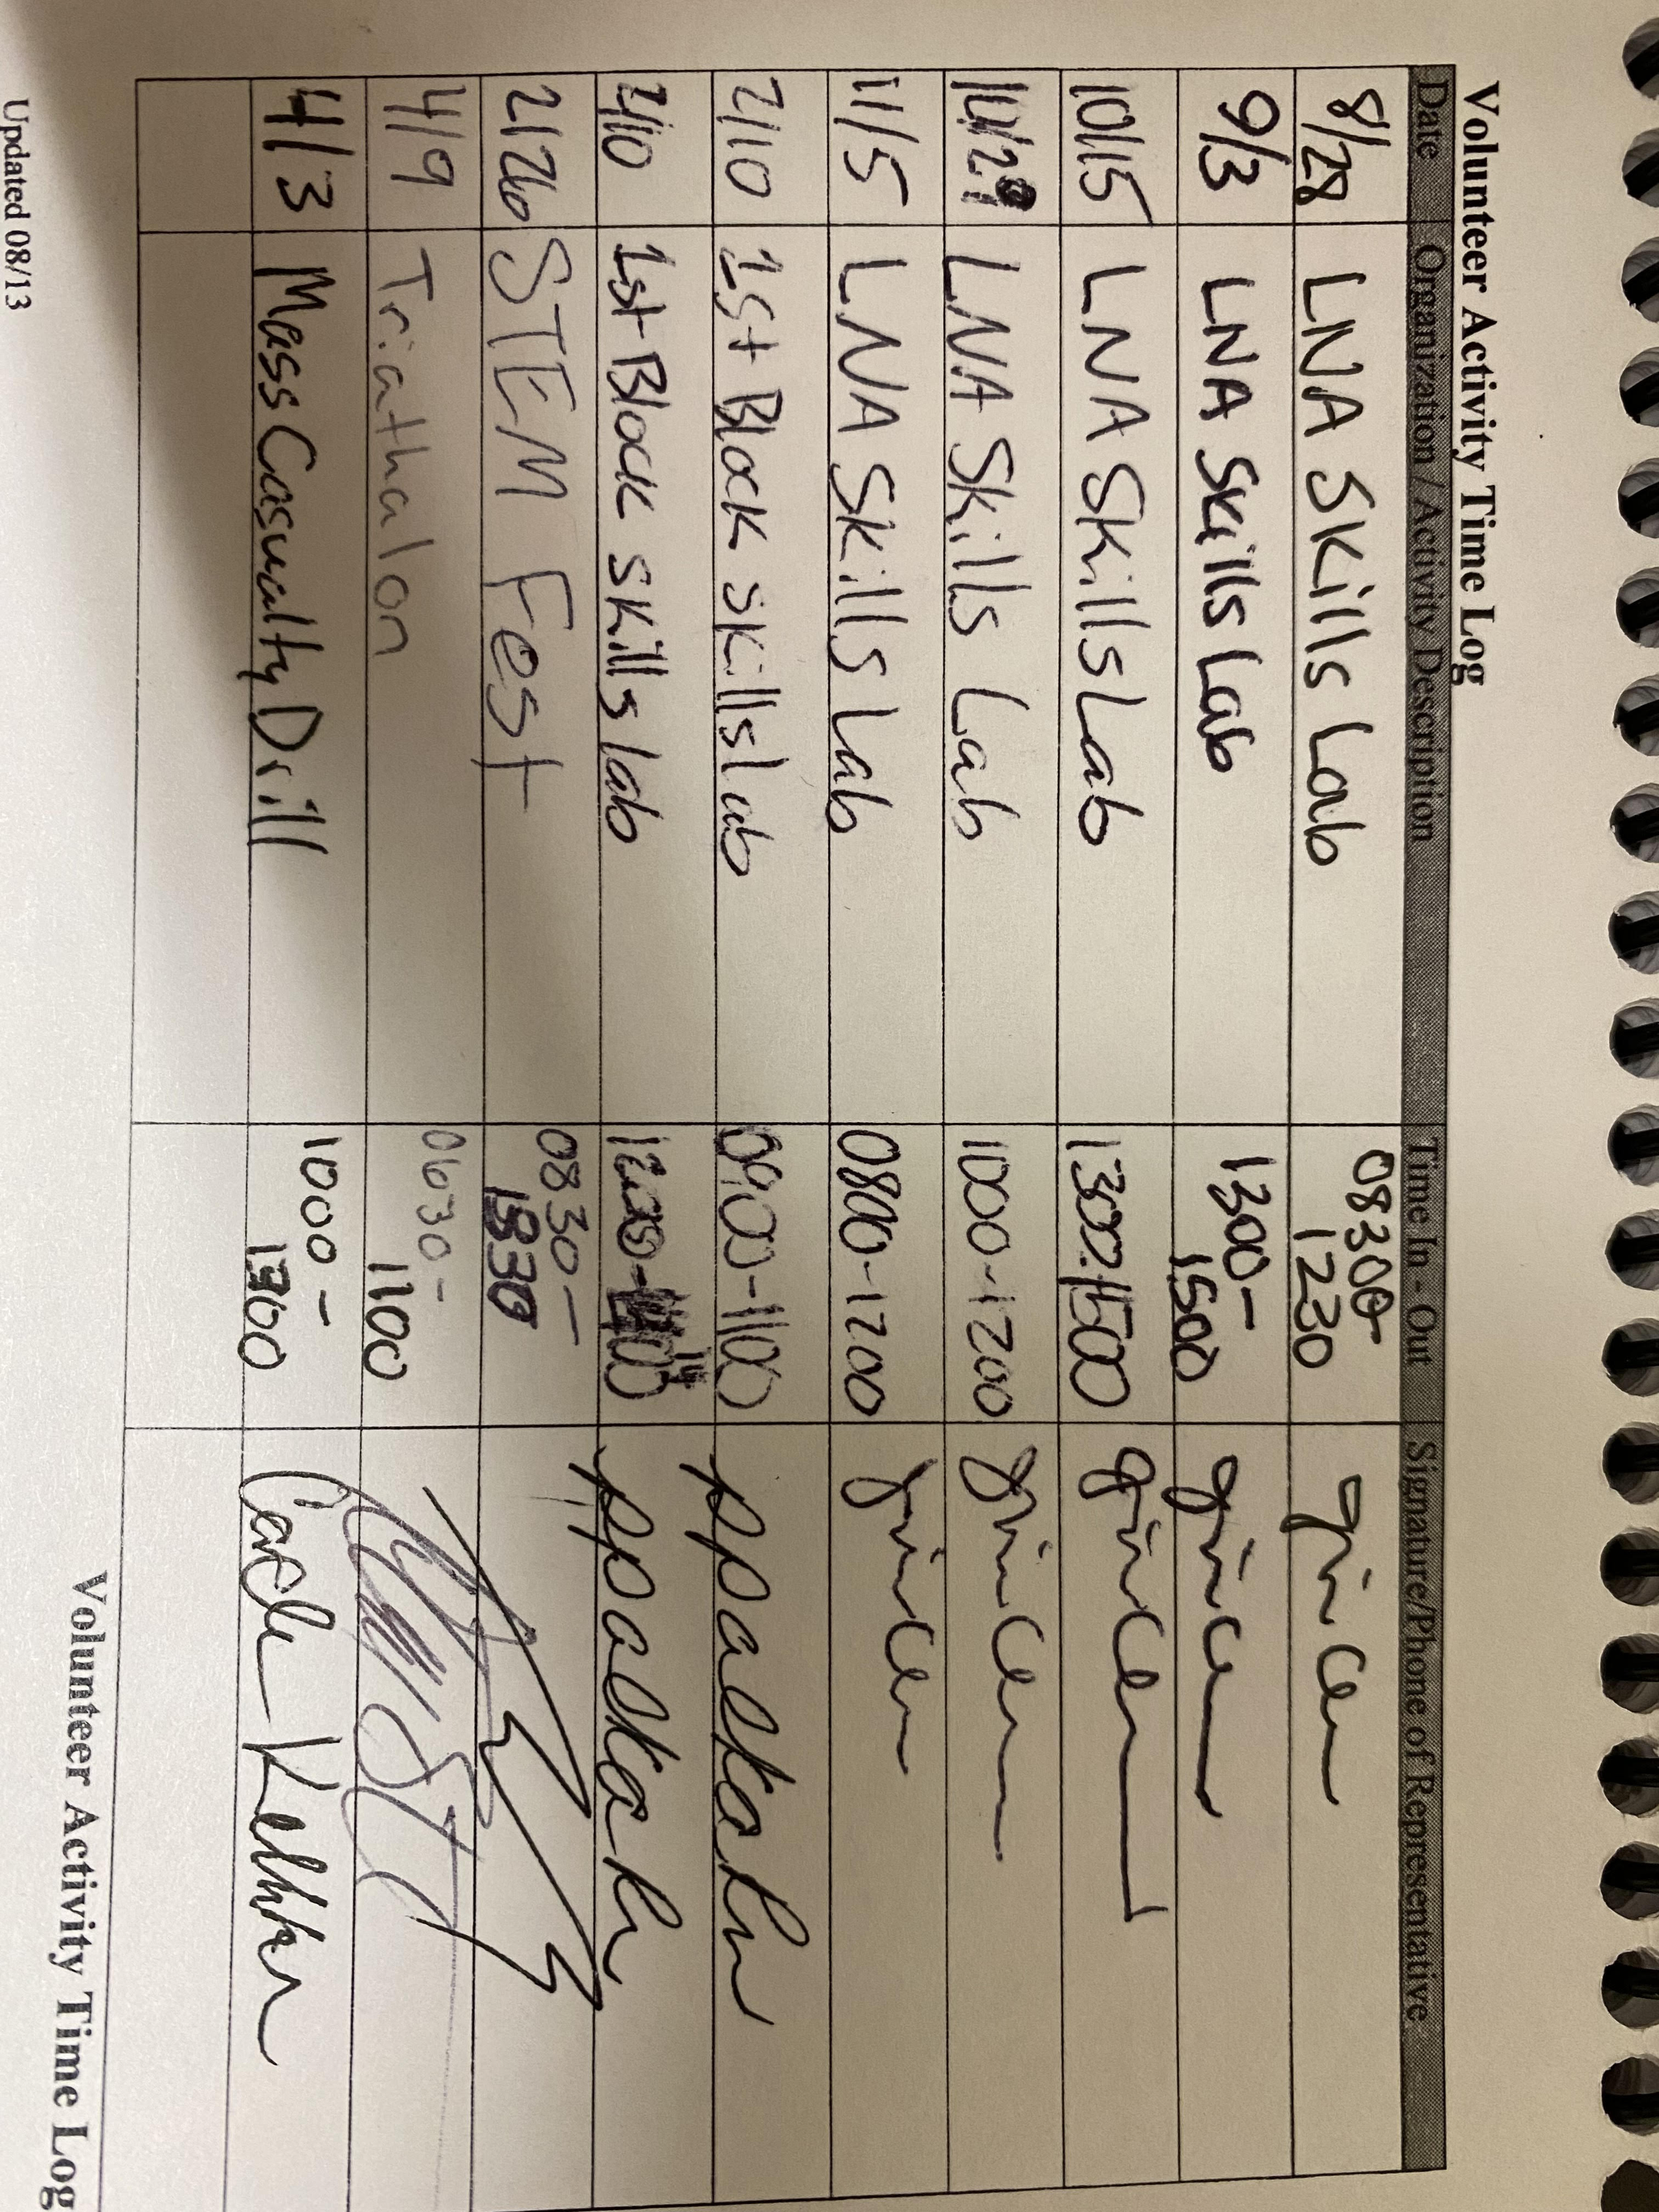 Volunteer Activity Time Log
Date Organization / Activity Description Time In - Out Signature/Phone of Representative
8/28 LNA Skills Lab 0830-
1230
9/3 LNA Skills Lab 1300-
1500
10/15 LNA Skills Lab 1300-1500
LNA Skills Lab 1000-1200
11/5 LNA Skills Lab 0800-1200
2/10 1st Block skills lab 0900-1100
2/10 1st Block skills lab
2/26 STEM Fest 0830-
1330
4/9 Triathalon 0630-
1100
4/3 Mass Casualty Drill 1000-
1300
Updated 08/13
Volunteer Activity Time Log